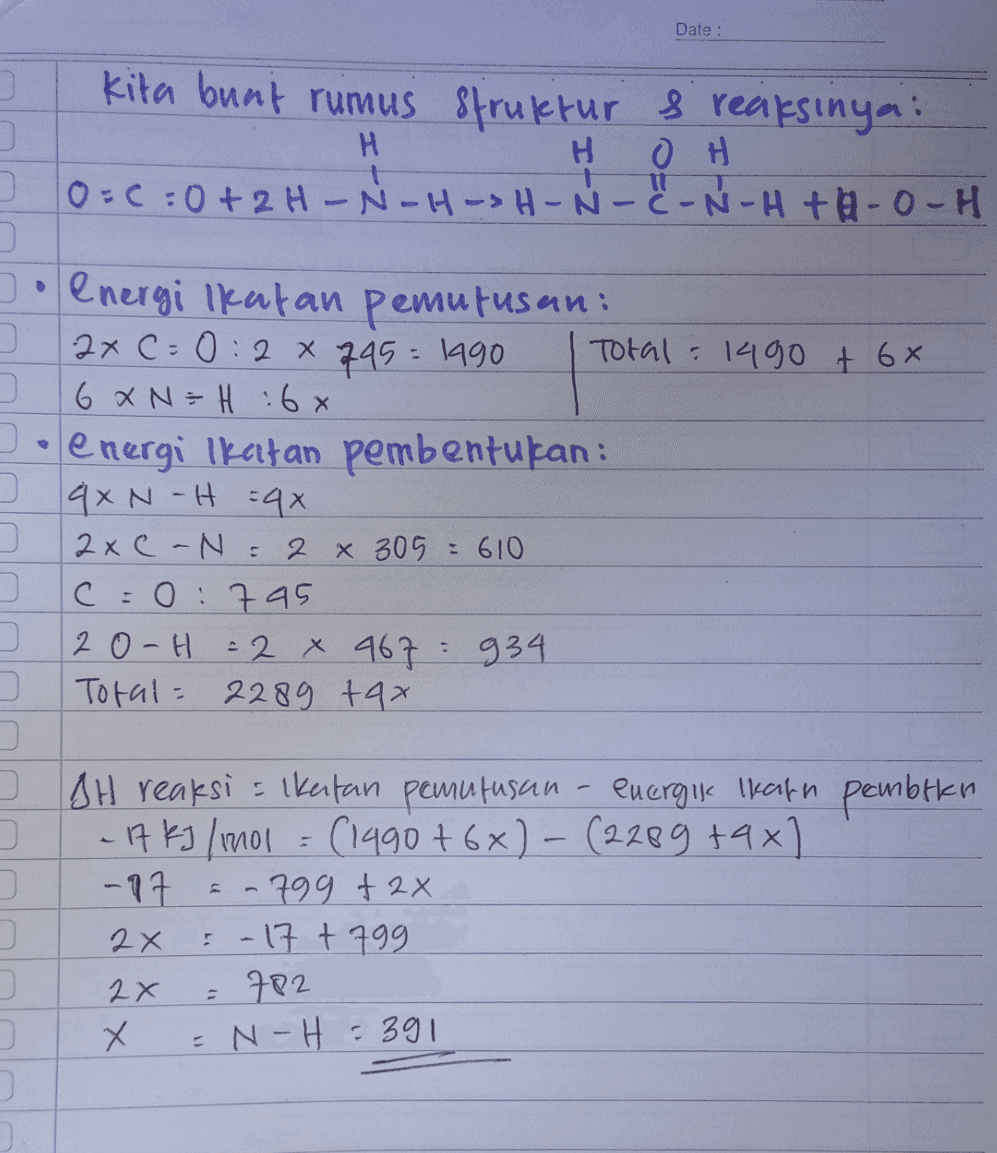 Date :
kita buat rumus struktur & reaksinya:
H H O H
O=C=O+2H-N-H->H-N-C-N-H+H-O-H
• energi Ikatan pemutusan:
2x C=O:2 x 745=1490 Total=1490+6x
6xN-H:6x
• energi Ikatan pembentukan:
4xN-H=4x
2xC-N=2 x 305=610
C=O:745
2 O-H=2 x 467=934
Total=2289+4x
ΔH reaksi=Ikatan pemutusan-energik Ikatn pembtkn
-17 kJ/mol=(1490+6x)-(2289+4x)
-17=-799+2x
2x=-17+799
2x=782
x=N-H=391